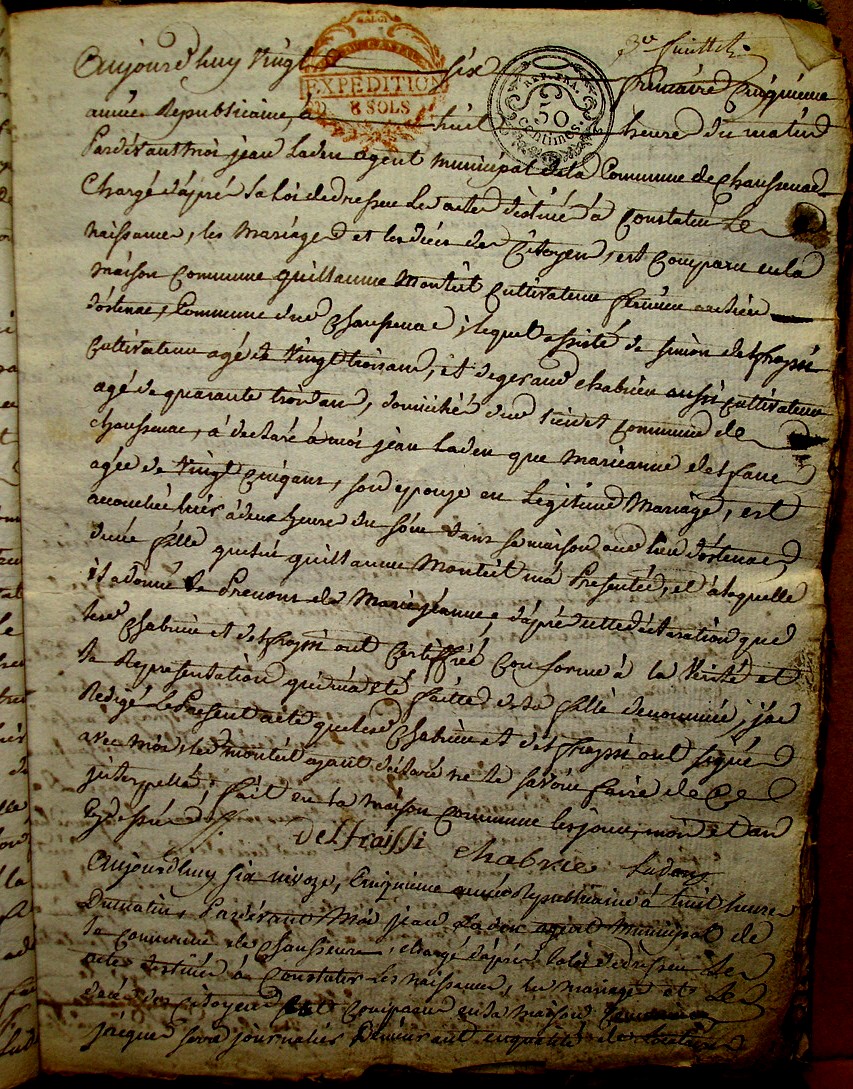 3e feuillet
EXPÉDITION
8 SOLS
REP. FRA.
50
centimes
Aujourd'huy Vingt six frimaire Cinquième
année Republicaine, à huit heure du matin
Pardevant moi jean Laden agent municipal de la Commune de chaussenac
Chargé d'après la loi de dresser les actes destinés à Constater Les
naissances, les mariages et les décès des Citoyens, est comparu en la
maison commune guillaume Monteil Cultivateur
d'ostenac, Commune de chaussenac, lequel assisté de simon delfraissi
Cultivateur agé de Vingt trois ans, et de geraud chabrie aussi Cultivateur
agé de quarante trois ans, domiciliés dud. lieu et commune de
chaussenac, a déclaré à moi jean Laden que marianne
agée de Vingt cinq ans, son epouse en Légitime Mariage, est
accouchée hier à deux heure du soir dans sa maison aud. lieu d'ostenac
d'une fille que led. guillaume Monteil m'a Presentée, et à laquelle
il a donné le Prenom de Marie jeanne; d'après cette déclaration que
lesd. Chabrie et delfraissi ont Certiffiée conforme à la Vérité et
la Representation qui m'a été faitte de la fille denommée, j'ai
Rédigé le Present acte que lesd. Chabrie et delfraissi ont signé
avec moi, led. monteil ayant déclaré ne le savoir faire de ce
interpellé, fait en la maison commune les jours, mois et an
delfraissi chabrie
Aujourd'huy six nivoze, Cinquième année Republicaine à huit heure
Du matin, Pardevant Moi jean agent Municipal de
la commune de chaussenac, chargé d'après la loi de dresser Les
actes destinés à Constater Les naissances, les mariages et Les
décès des Citoyens est comparu en la maison commune
jacques serre journalier Demeurant en qualité de